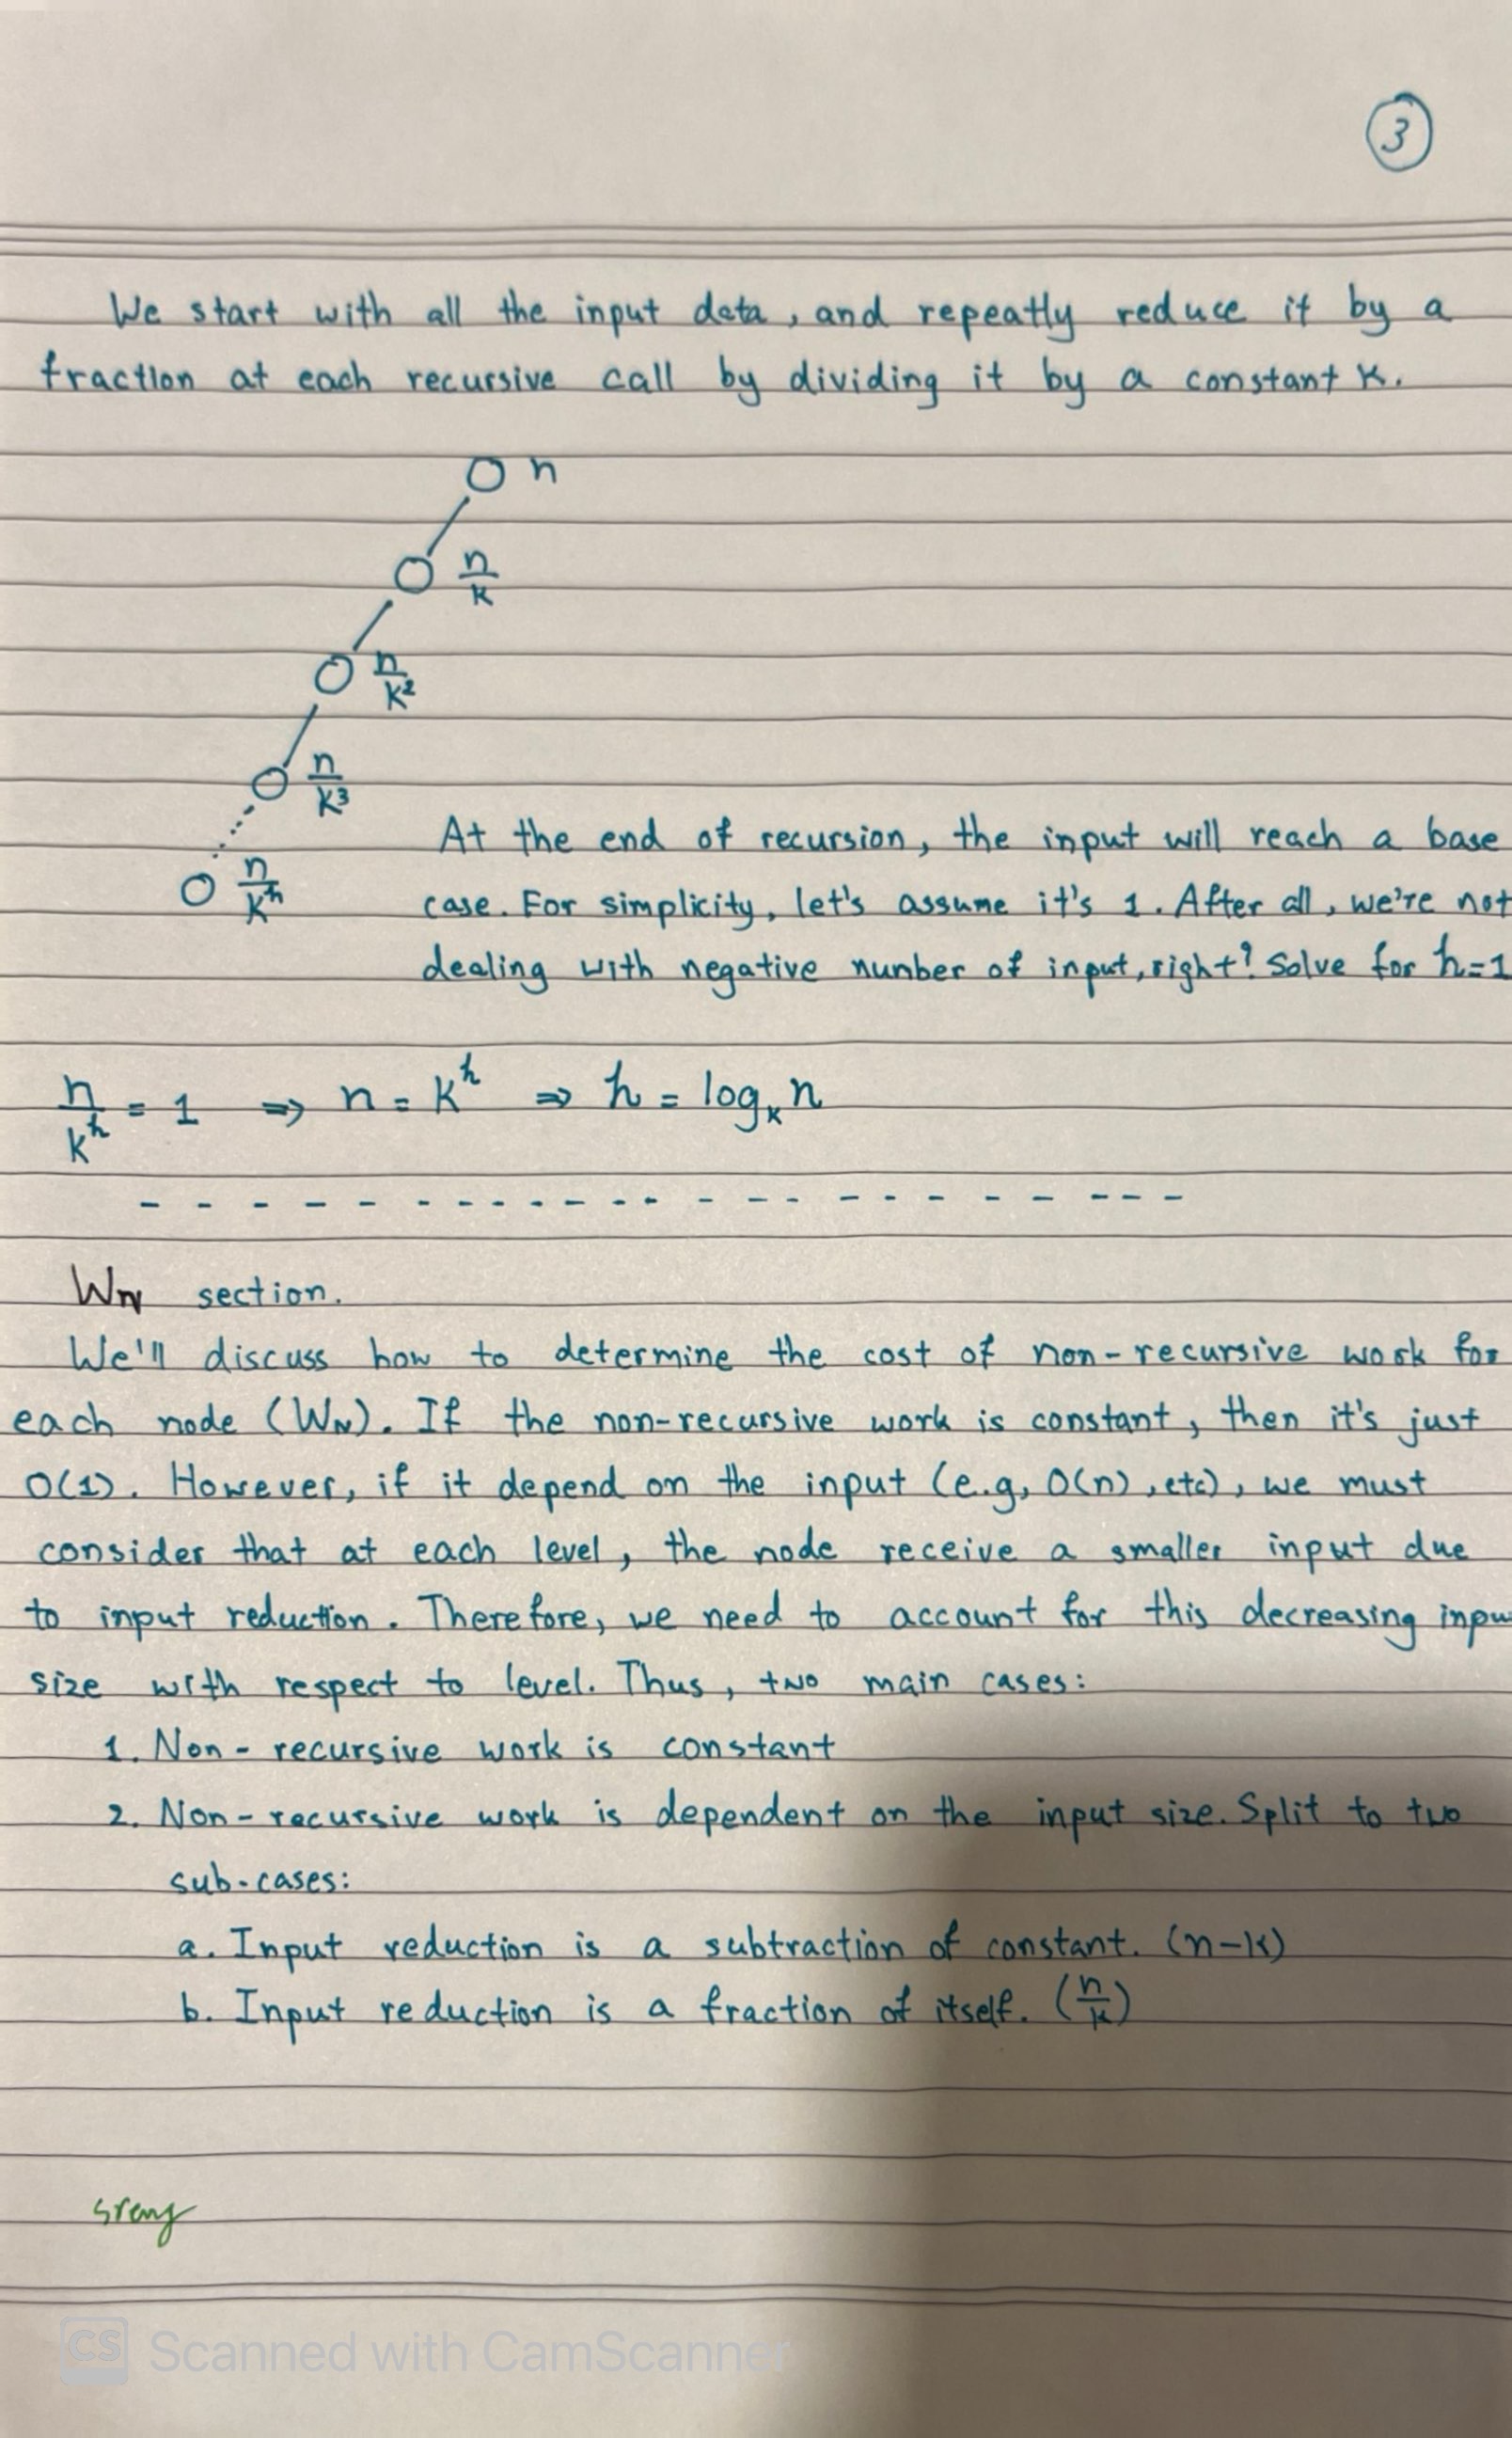 3
We start with all the input data, and repeatly reduce it by a
fraction at each recursive call by dividing it by a constant k.
n
n/k
n/k²
n/k³
n/k^h
At the end of recursion, the input will reach a base
case. For simplicity, let's assume it's 1. After all, we're not
dealing with negative number of input, right? Solve for h=1
n/k^h = 1 ⇒ n = k^h ⇒ h = logₖ n
W_N section.
We'll discuss how to determine the cost of non-recursive work for
each node (W_N). If the non-recursive work is constant, then it's just
O(1). However, if it depend on the input (e.g, O(n), etc), we must
consider that at each level, the node receive a smaller input due
to input reduction. Therefore, we need to account for this decreasing inpu
size with respect to level. Thus, two main cases:
1. Non-recursive work is constant
2. Non-recursive work is dependent on the input size. Split to two
sub-cases:
a. Input reduction is a subtraction of constant. (n-k)
b. Input reduction is a fraction of itself. (n/k)
sreng
CS Scanned with CamScanner